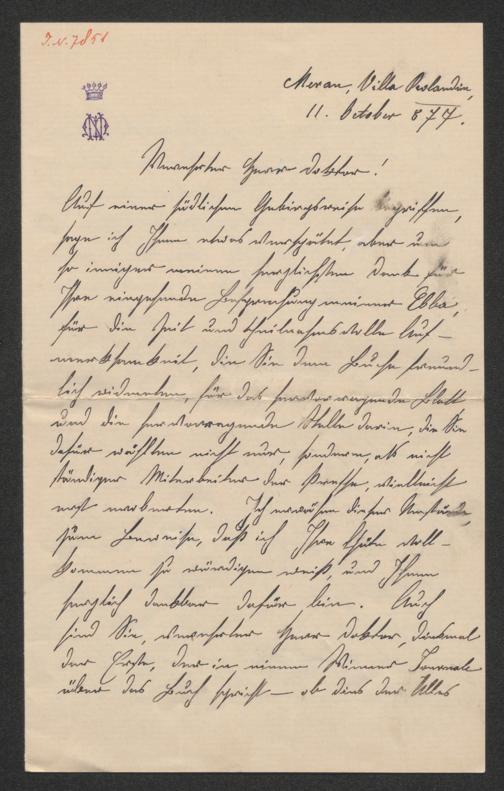 I.N. 7851
Meran, Villa
11. October 877.
Verehrter Herr Doktor!
Auf einer südlichen Gebirgsreise begriffen,
sage ich Ihnen etwas verspätet, aber um
so inniger meinen herzlichsten Dank für
Ihre eingehende Besprechung meiner Ebba,
für die Zeit und theilnahmsvolle Auf-
merksamkeit, die Sie dem Buche freund-
lich widmeten, für das hervorragende Blatt
und die hervorragende Stelle darin, die Sie
dafür wählten nicht nur, sondern, als nicht
ständiger Mitarbeiter der Presse, vielleicht
erst erobern. Ich erwähne dieser Umstände,
zum Beweise, daß ich Ihre Güte voll-
kommen zu würdigen weiß, und Ihnen
herzlich dankbar dafür bin. Auch
sind Sie, verehrter Herr Doktor, diesmal
der Erste, der in einem Wiener Journale
über das Buch spricht – ob dies der Alles